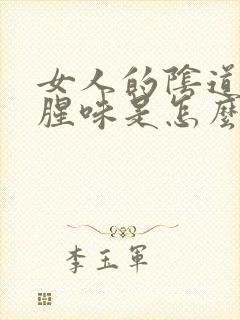 女人的陰道
腥味是怎麼
李玉軍